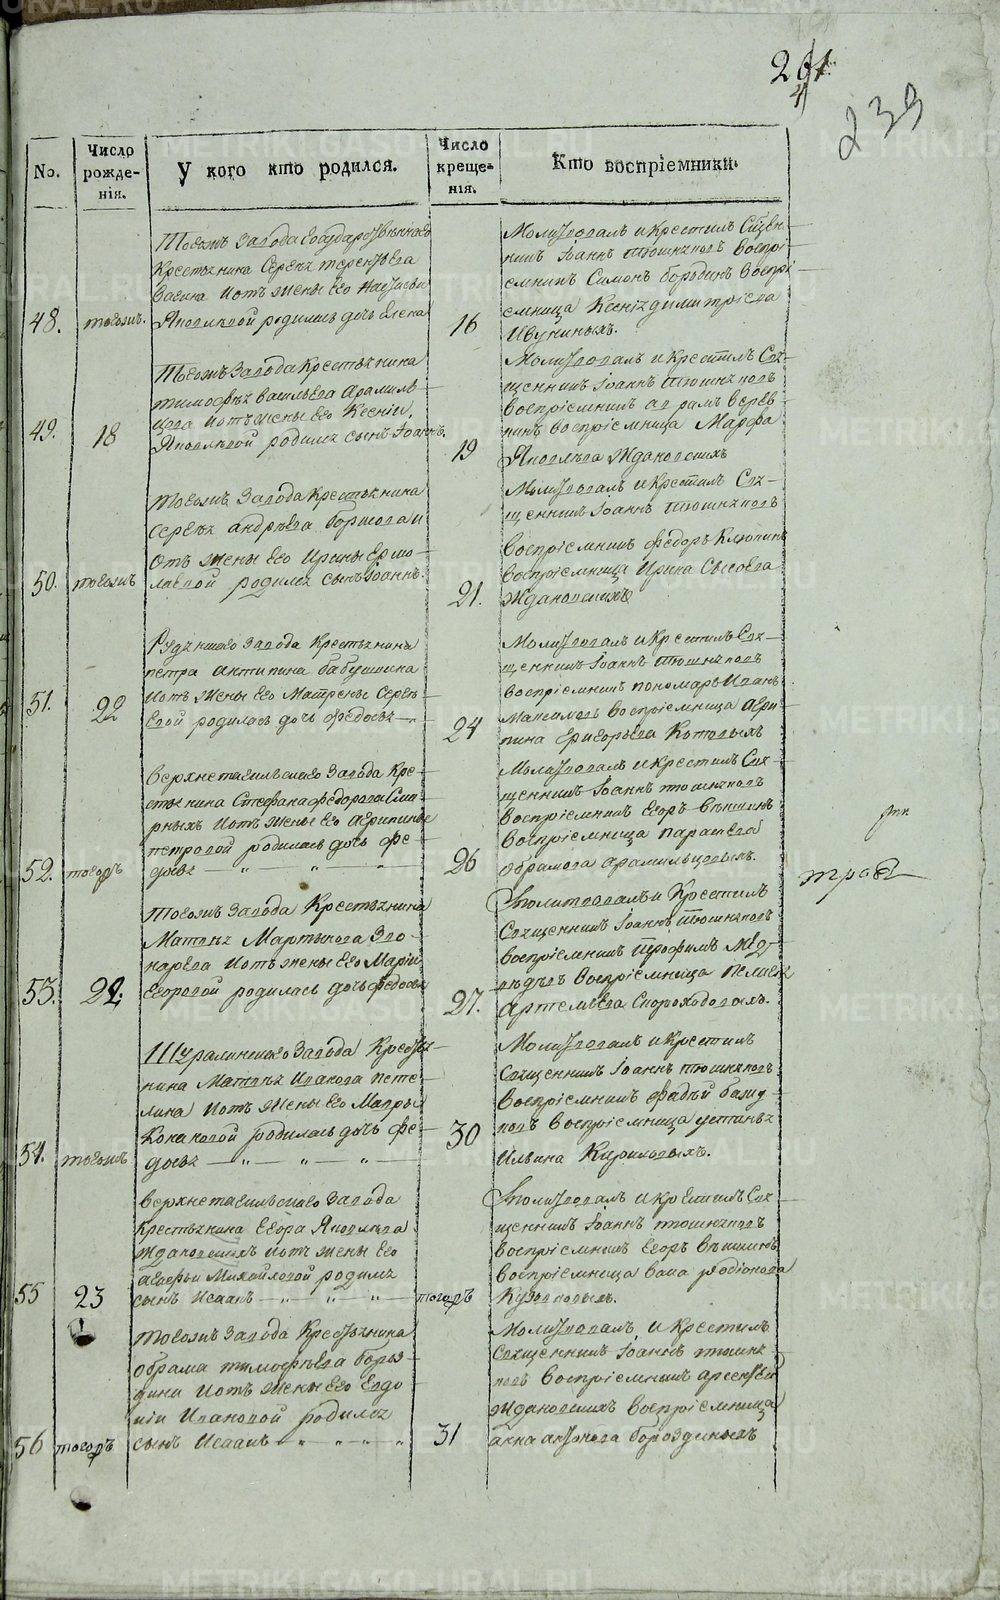 201
4
239
No.
Число рожде-нія.
У кого кто родился.
Число креще-нія.
Кто воспріемники.
48.
тогожъ
Тогожъ Завода Государственнаго
Крестьянина Сергея Терентьева
Вагина и отъ жены его Настасьи
Яковлевой родилась дочь Елена
16
Молитвовалъ и крестилъ Священ-
никъ Іоаннъ Тюшняковъ воспрі-
емникъ Симонъ Бородинъ воспрі-
емница Ксенія Димитріева
49.
18
Тогожъ Завода Крестьянина
Тимофея Васильева Арамиль-
цова и отъ жены его Ксеніи
Яковлевой родился сынъ Іоаннъ.
19
Молитвовалъ и крестилъ Свя-
щенникъ Іоаннъ Тюшняковъ
воспріемникъ
воспріемница Марфа
Яковлева Ждановскихъ
50.
тогожъ
Тогожъ Завода Крестьянина
Сергея Андреева и
отъ жены его Ирины Ермо-
лаевой родился сынъ Іоаннъ.
21.
Молитвовалъ и крестилъ Свя-
щенникъ Іоаннъ Тюшняковъ
воспріемникъ Федоръ Клюкинъ
воспріемница Ирина Сысоева
Ждановскихъ
51.
22
Рудянскаго Завода Крестьянина
Петра Антипина Бабушкина
и отъ жены его Матрены Серге-
евой родилась дочь Федосья
24
Молитвовалъ и крестилъ Свя-
щенникъ Іоаннъ Тюшняковъ
воспріемникъ пономарь Иванъ
Максимовъ воспріемница Агри-
пина Григорьева Котовыхъ
52.
тогожъ
Верхнетагильскаго Завода Кре-
стьянина Стефана Федорова Смир-
ныхъ и отъ жены его Агрипины
Петровой родилась дочь Фе-
досья — „ — „ — „ —
26
Молитвовалъ и крестилъ Свя-
щенникъ Іоаннъ Тюшняковъ
воспріемникъ Егоръ Векшинъ
воспріемница Параскева
Обрамова Арамильцовыхъ.
53.
22.
Тогожъ Завода Крестьянина
Матвея Мартынова Зво-
нарева и отъ жены его Маріи
Егоровой родилась дочь Федосья
27.
Молитвовалъ и Крестилъ
Священникъ Іоаннъ Тюшняковъ
воспріемникъ Трофимъ Мед-
ведевъ воспріемница Пелагея
Артемьева Скороходовыхъ.
54.
тогожъ
Шуралинскаго Завода Крестья-
нина Матвея Исакова Пете-
лина и отъ жены его Мавры
Кононовой родилась дочь Фе-
досья — „ — „ — „ —
30
Молитвовалъ и Крестилъ
Священникъ Іоаннъ Тюшняковъ
воспріемникъ Фадей
воспріемница Устинья
Ильина Кириловыхъ.
55
23
Верхнетагильскаго Завода
Крестьянина Егора Яковлева
Ждановскихъ и отъ жены его
Агафьи Михайловой родился
сынъ Исаакъ — „ — „ — „ —
тогожъ
Молитвовалъ и крестилъ Свя-
щенникъ Іоаннъ Тюшняковъ
воспріемникъ Егоръ Векшинъ
воспріемница Васа Родіонова
56
тогожъ
Тогожъ Завода Крестьянина
Обрама Тимофеева Бороз-
дина и отъ жены его Евдо-
кіи Ивановой родился
сынъ Исаакъ — „ — „ — „
31
Молитвовалъ и Крестилъ
Священникъ Іоаннъ Тюшня-
ковъ воспріемникъ Арсентей
Ждановскихъ воспріемница
Анна Антонова Бороздиныхъ
METRIKI.GASO-URAL.RU